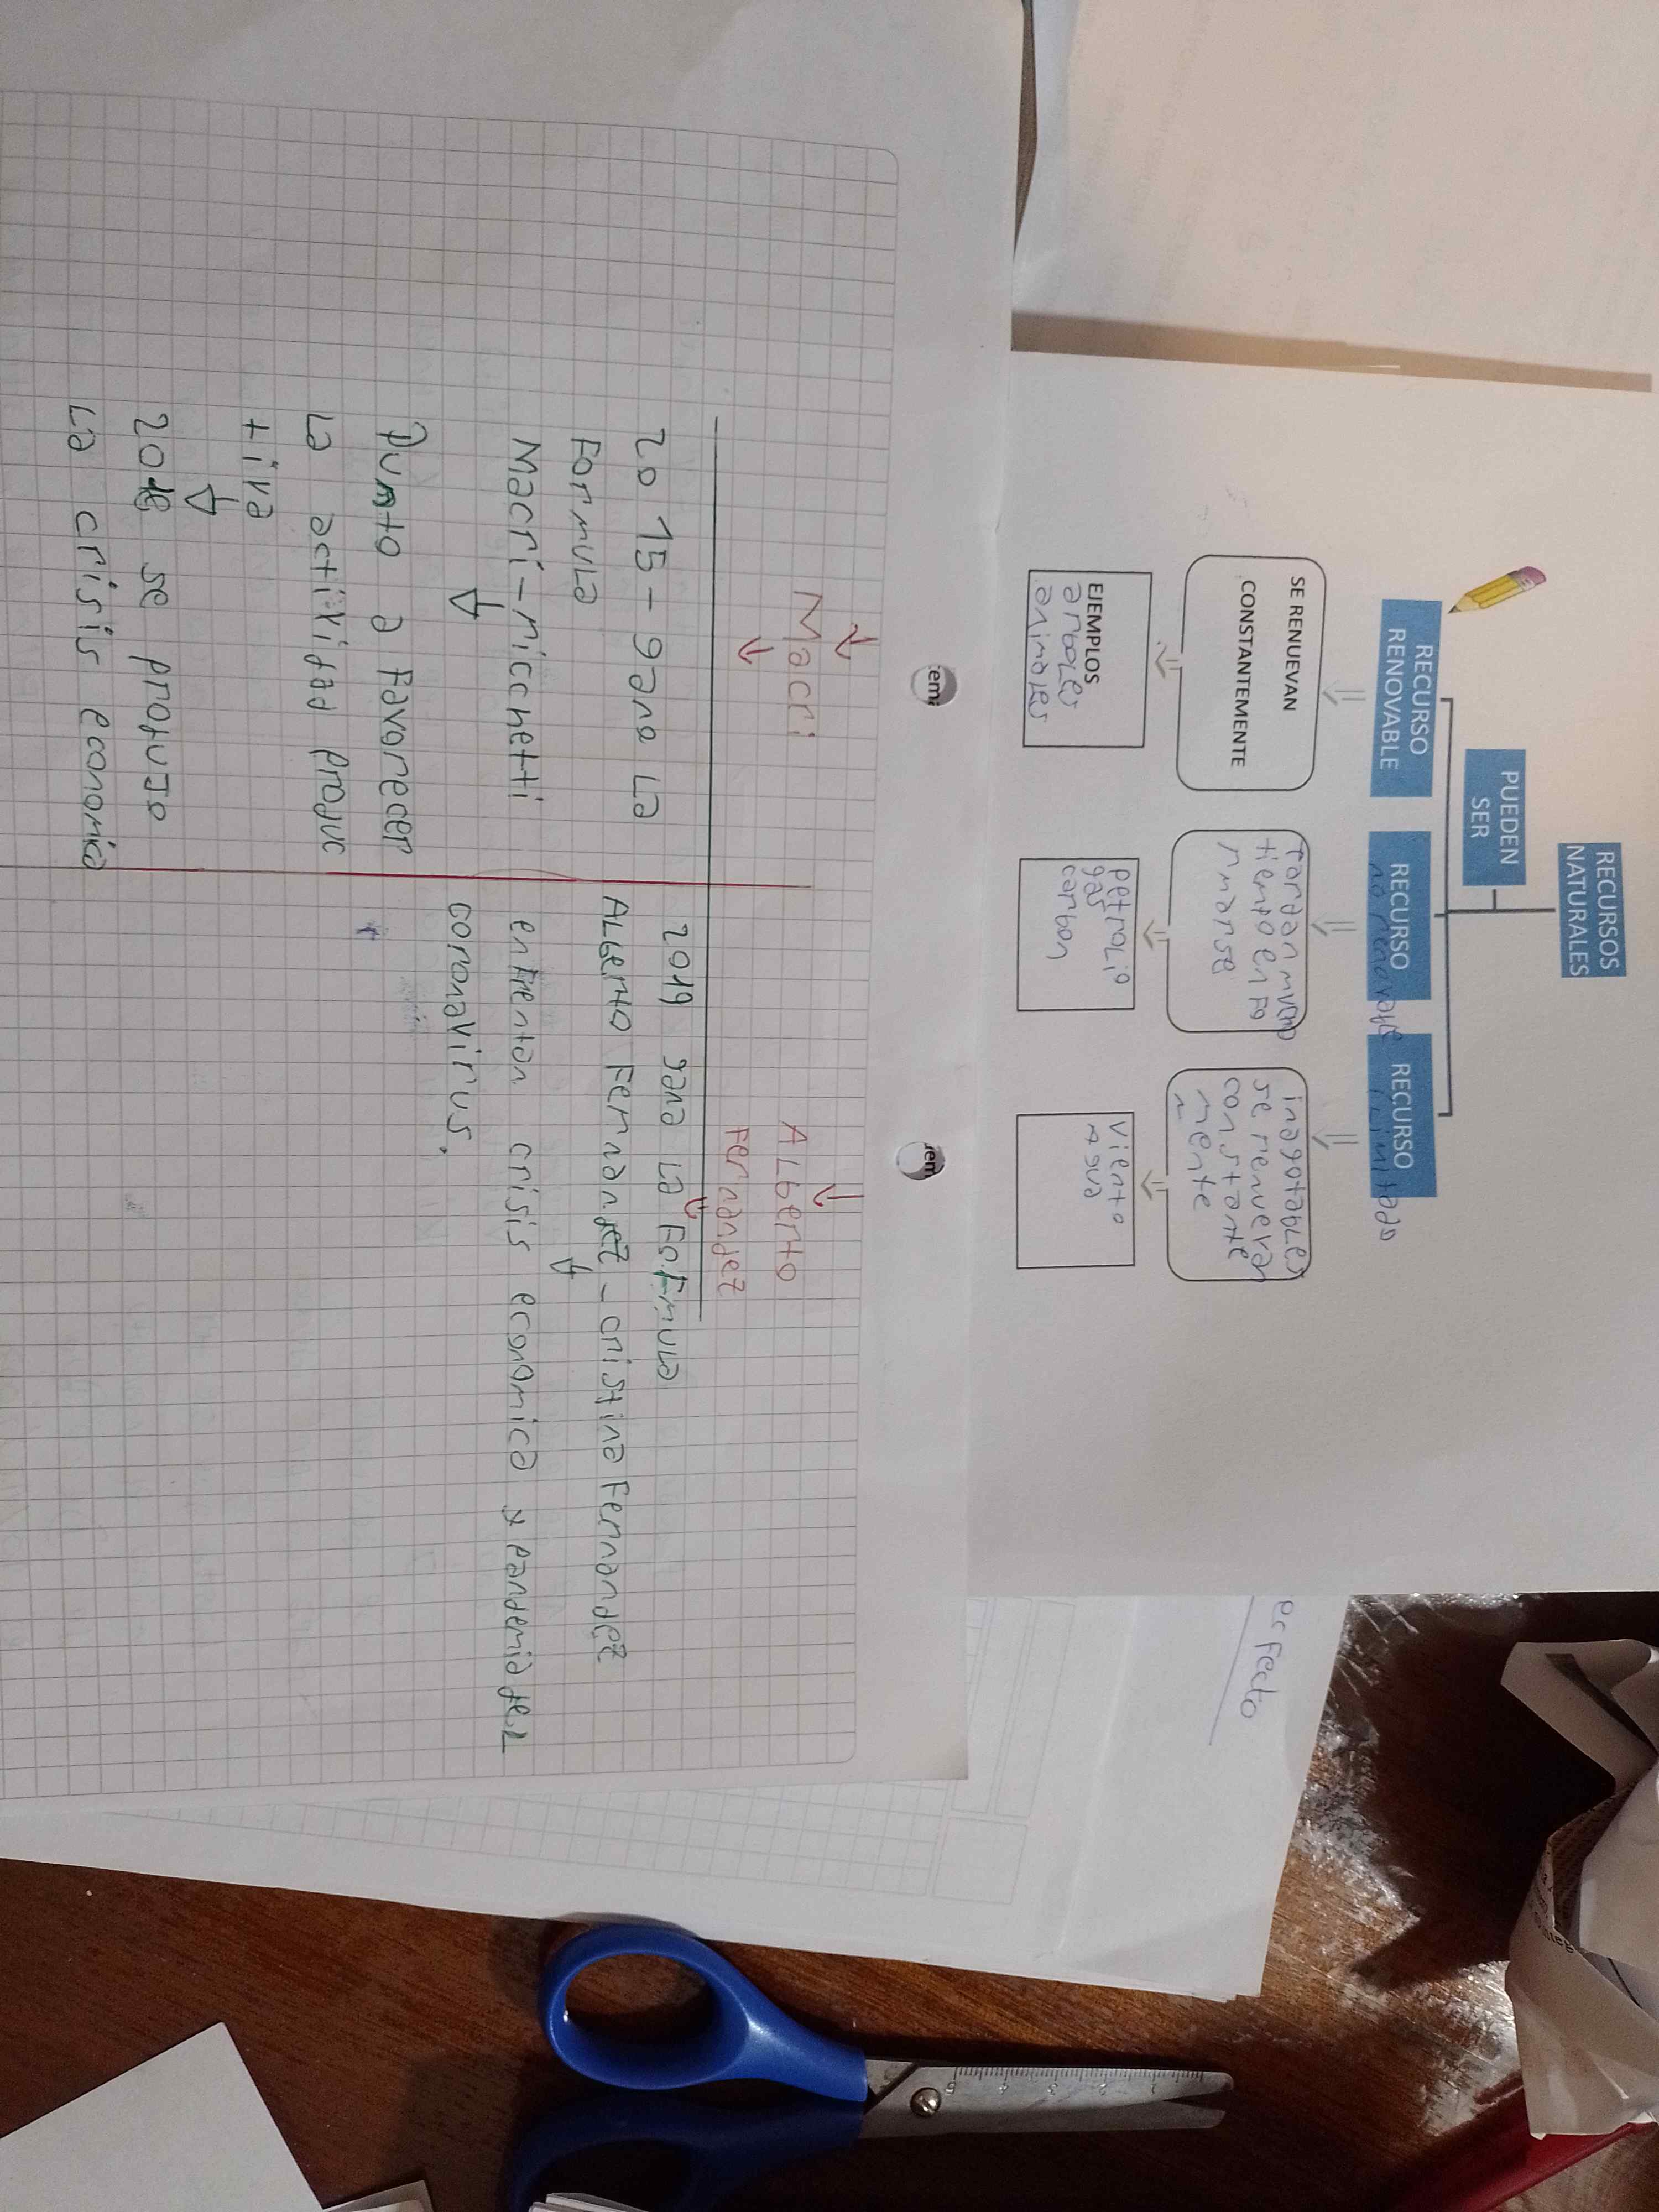 RECURSOS
NATURALES
PUEDEN
SER
RECURSO
RENOVABLE
SE RENUEVAN
CONSTANTEMENTE
EJEMPLOS
arboles
animales
RECURSO
no renovable
tardan mucho
tiempo en fo
rmarse
petrolio
gas
carbon
RECURSO
ilimitado
inagotables
se renuevan
constante
mente
viento
Agua
erfecto
Macri
2015 - gana La
Formula
Macri-ricchetti
Punto a favorecer
La actividad produc
tiva
2018 se produjo
La crisis economica
Alberto
Fernandez
2019 gana La Formula
Alberto Fernandez - cristina Fernandez
enfrentan crisis economica y pandemia del
coronavirus.